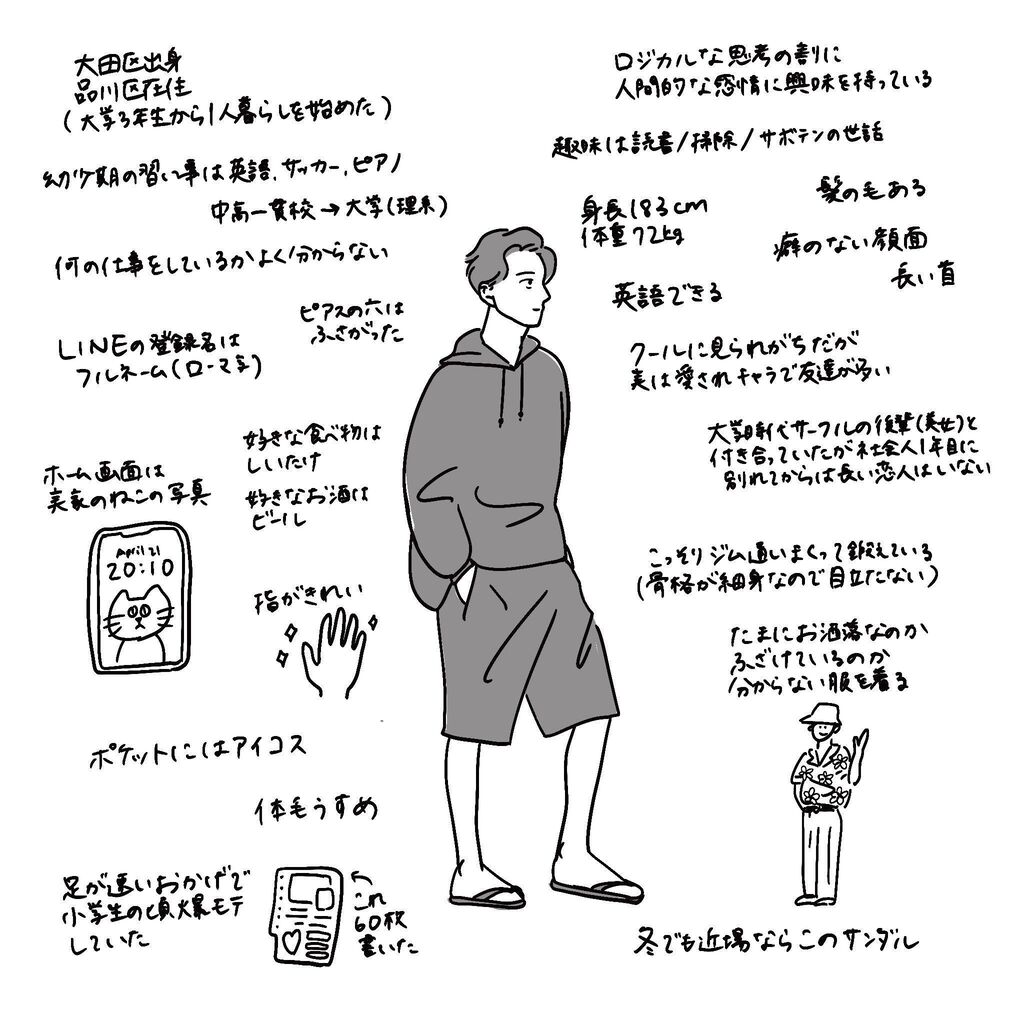 大田区出身
品川区在住
(大学3年生から1人暮らしを始めた)
幼少期の習い事は英語、サッカー、ピアノ
中高一貫校→大学(理系)
何の仕事をしているかよく分からない
ピアスの穴は
ふさがった
LINEの登録名は
フルネーム(ローマ字)
好きな食べ物は
しいたけ
好きなお酒は
ビール
ホーム画面は
実家のねこの写真
April 21
20:10
指がきれい
ポケットにはアイコス
体毛うすめ
足が速いおかげで
小学生の頃爆モテ
していた
←これ
60枚
書いた
ロジカルな思考の割に
人間的な感情に興味を持っている
趣味は読書/掃除/サボテンの世話
身長183cm
体重72kg
髪の毛ある
癖のない顔面
長い首
英語できる
クールに見られがちだが
実は愛されキャラで友達が多い
大学時代サークルの後輩(美女)と
付き合っていたが社会人1年目に
別れてからは長い恋人はいない
こっそりジム通いまくって鍛えている
(骨格が細身なので目立たない)
たまにお洒落なのか
ふざけているのか
分からない服を着る
冬でも近場ならこのサンダル